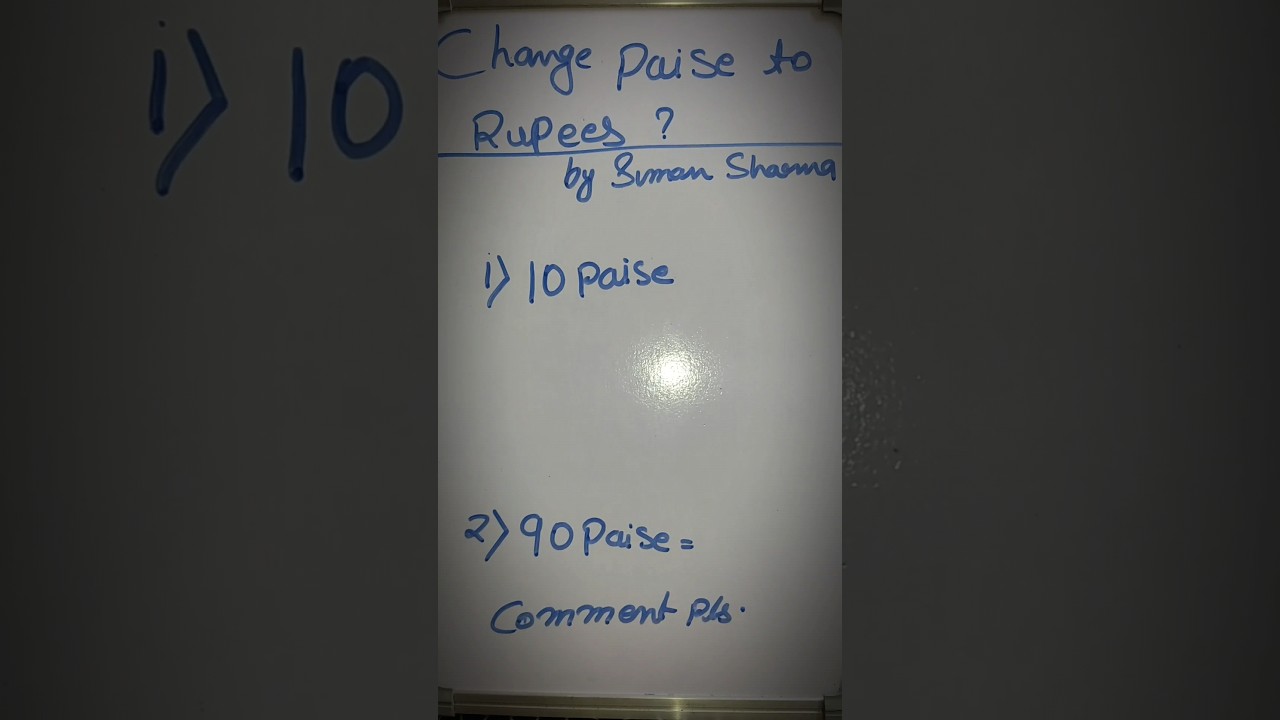 i) 10
Change Paise to
Rupees ?
by Suman Sharma
1) 10 Paise
2) 90 Paise =
Comment Pls.